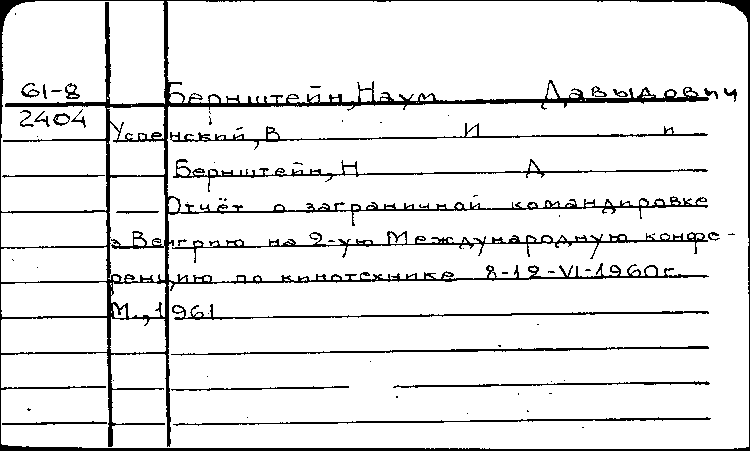 61-8 Бернштейн, Наум Давыдович
2404
Успенский, В И и
Бернштейн, Н Д
Отчёт о заграничной командировке
в Венгрию на 2-ую Международную конфе-
ренцию по кинотехнике 8-12-VI-1960г.
М., 1961